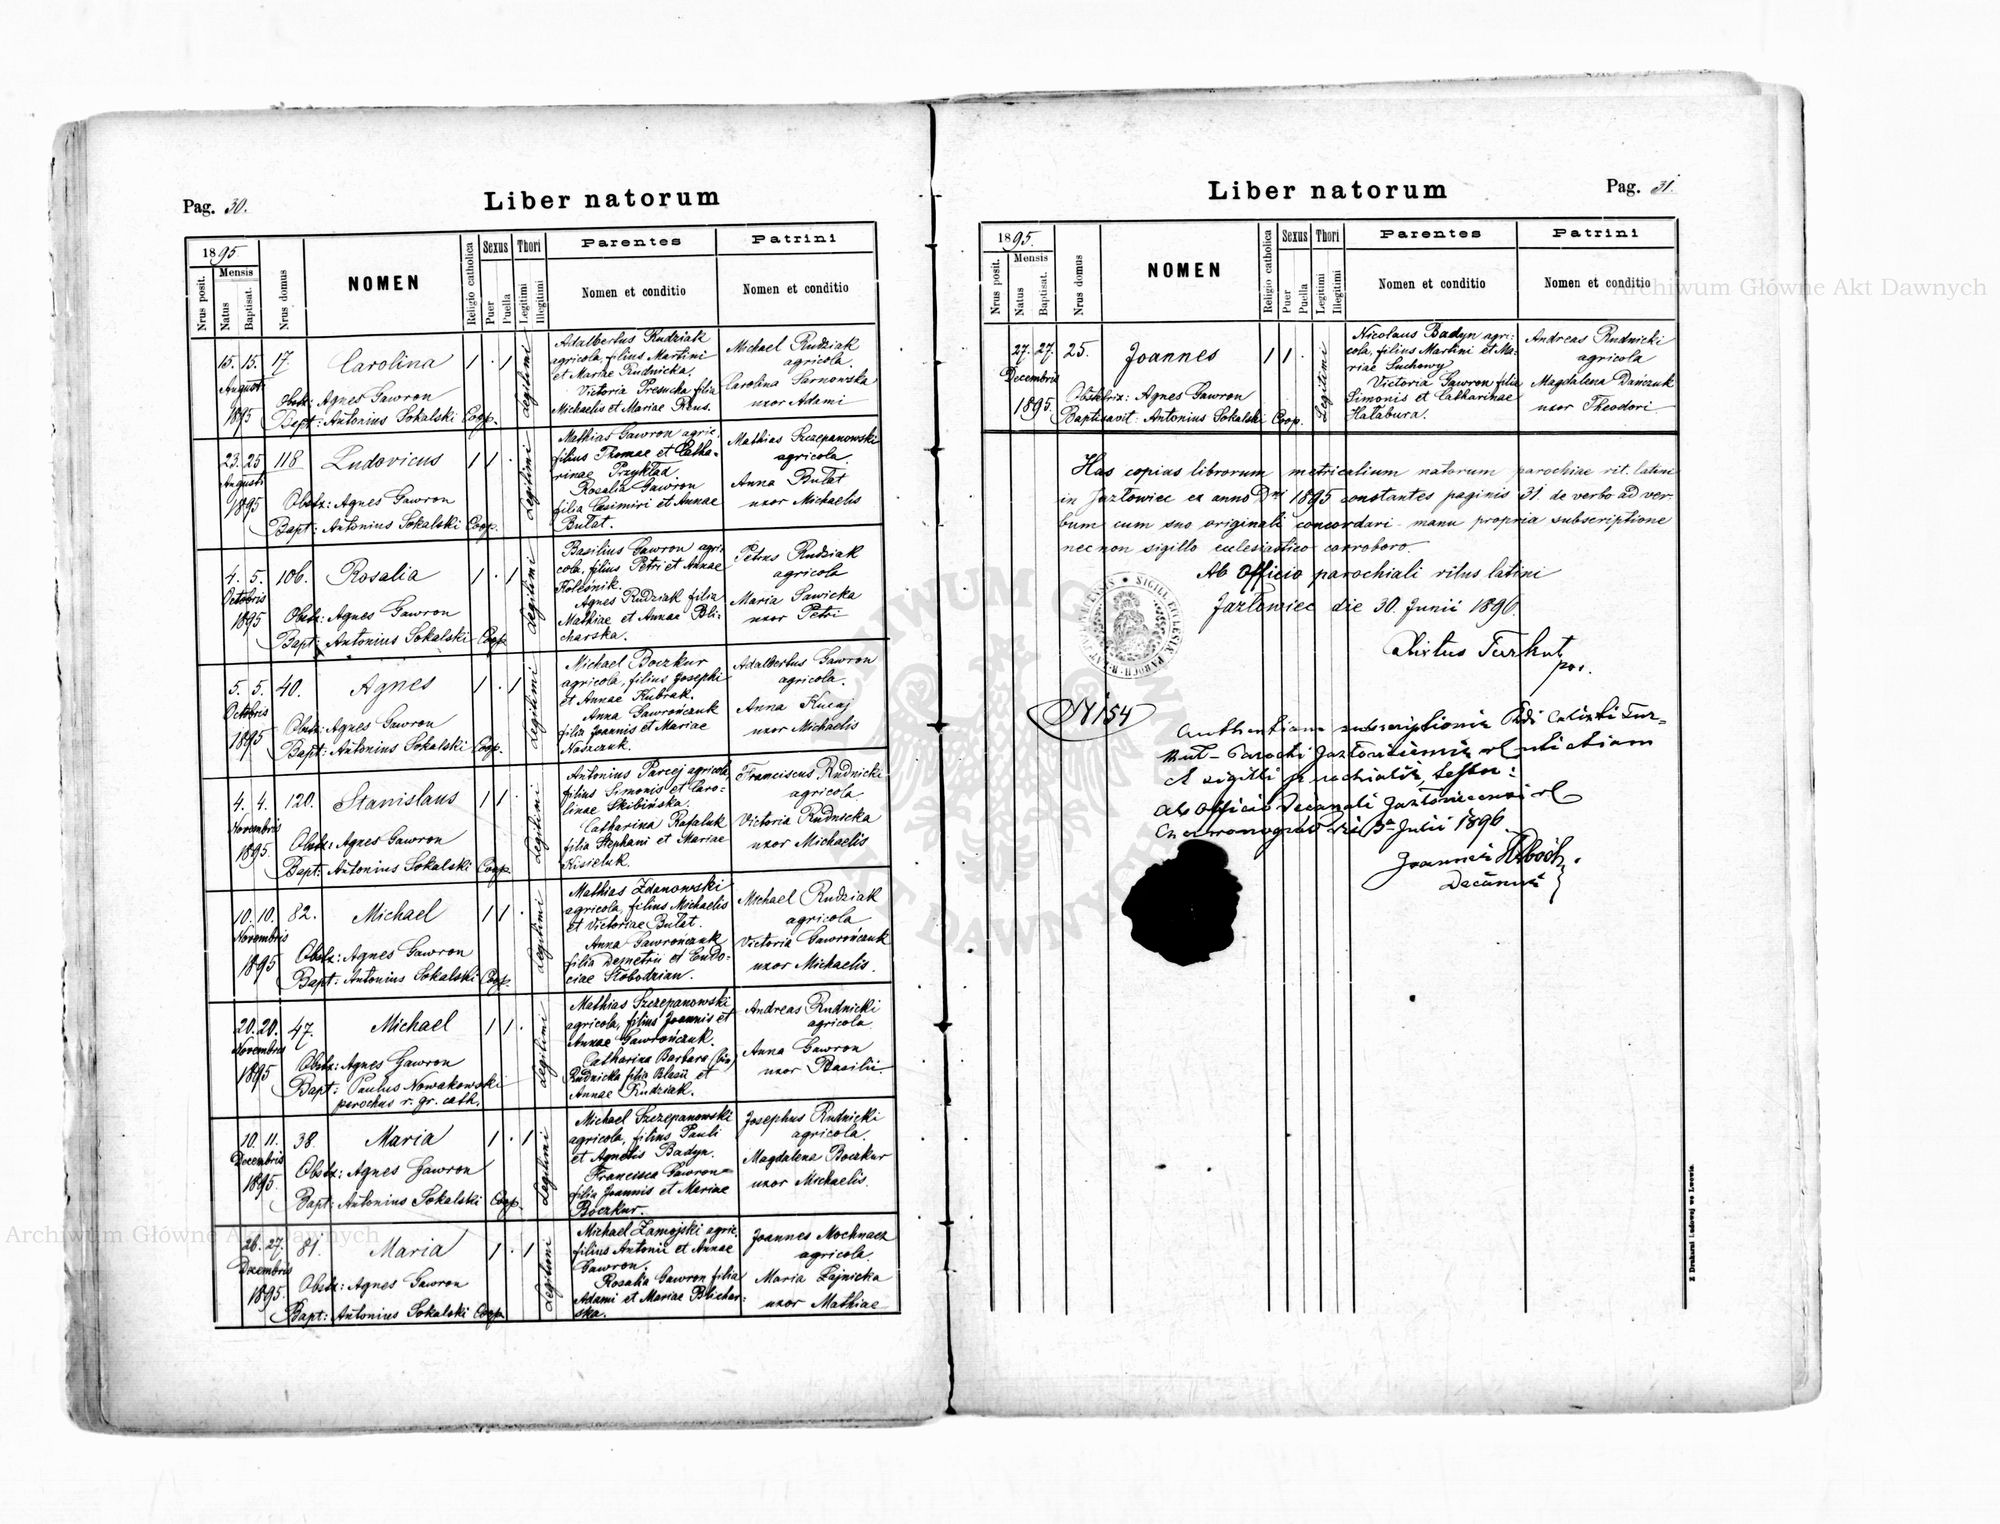 Pag. 30.
Liber natorum
1895
Nrus posit.
Mensis
Natus
Baptisat.
Nrus domus
NOMEN
Religio catholica
Sexus
Puer
Puella
Thori
Legitimi
Illegitimi
Parentes
Nomen et conditio
Patrini
Nomen et conditio
15. 15. 17. Carolina 1 . 1 Legitimi
Augusti
1895
Obstr: Agnes Gawron
Bapt: Antonius Sokalski Coop.
Adalbertus Rudziak
agricola, filius Martini
et Mariae Rudnicka.
Victoria Presucka filia
Michaelis et Mariae Reus.
Michael Rudziak
agricola.
Carolina Sarnowska
uxor Adami
23. 25 118 Ludovicus 1 1 . Legitimi
Augusti
1895
Obstr: Agnes Gawron
Bapt: Antonius Sokalski Coop.
Mathias Gawron agric.
filius Thomae et Catha-
rinae Przykład
Rosalia Gawron
filia Casimiri et Annae
Bułat.
Mathias Szczepanowski
agricola.
Anna Bułat
uxor Michaelis
4. 5. 106. Rosalia 1 . 1 Legitimi
Octobris
1895
Obstr: Agnes Gawron
Bapt: Antonius Sokalski Coop.
Basilius Gawron agri-
cola, filius Petri et Annae
Koleśnik
Agnes Rudziak filia
Mathiae et Annae Bli-
charska.
Petrus Rudziak
agricola
Maria Sawicka
uxor Petri
5. 5. 40. Agnes 1 . 1 Legitimi
Octobris
1895
Obstr: Agnes Gawron
Bapt: Antonius Sokalski Coop.
Michael Boczkur
agricola, filius Josephi
et Annae Kubrak.
Anna Gawrończuk
filia Joannis et Mariae
Naszczuk.
Adalbertus Gawron
agricola.
Anna Kucaj
uxor Michaelis
4. 4. 120. Stanislaus 1 1 . Legitimi
Novembris
1895.
Obstr: Agnes Gawron
Bapt: Antonius Sokalski Coop.
Antonius Parcej agricola,
filius Simonis et Caro-
linae Skibińska.
Catharina Rafaluk
filia Stephani et Mariae
Kisieluk.
Franciscus Rudnicki
agricola
Victoria Rudnicka
uxor Michaelis
10. 10. 82. Michael 1 1 . Legitimi
Novembris
1895
Obstr: Agnes Gawron
Bapt: Antonius Sokalski Coop.
Mathias Zdanowski
agricola, filius Michaelis
et Victoriae Bułat.
Anna Gawrończuk
filia Demetrii et Eudo-
ciae Słobodzian.
Michael Rudziak
agricola
Victoria Gawrończuk
uxor Michaelis.
20. 20. 47. Michael 1 1 . Legitimi
Novembris
1895
Obstr: Agnes Gawron
Bapt: Paulus Nowakowski
parochus r. gr. cath.
Mathias Szczepanowski
agricola, filius Joannis et
Annae Gawrończuk.
Catharina Barbara (bin)
Rudnicka filia Blasii et
Annae Rudziak.
Andreas Rudnicki
agricola
Anna Gawron
uxor Basilii.
10. 11. 38. Maria 1 . 1 Legitimi
Decembris
1895.
Obstr: Agnes Gawron
Bapt: Antonius Sokalski Coop.
Michael Szczepanowski
agricola, filius Pauli
et Agnetis Badyn.
Francisca Gawron
filia Joannis et Mariae
Boczkur.
Josephus Rudnicki
agricola.
Magdalena Boczkur
uxor Michaelis.
26. 27. 81. Maria 1 . 1 Legitimi
Decembris
1895.
Obstr: Agnes Gawron
Bapt: Antonius Sokalski Coop.
Michael Zamojski agric.
filius Antonii et Annae
Gawron.
Rosalia Gawron filia
Adami et Mariae Blichar-
ska.
Joannes Mochnacz
agricola
Maria Łajnicka
uxor Mathiae
Liber natorum
Pag. 31.
1895.
Nrus posit.
Mensis
Natus
Baptisat.
Nrus domus
NOMEN
Religio catholica
Sexus
Puer
Puella
Thori
Legitimi
Illegitimi
Parentes
Nomen et conditio
Patrini
Nomen et conditio
27. 27. 25. Joannes 1 1 . Legitimi
Decembris
1895.
Obstetrix: Agnes Gawron
Baptisavit: Antonius Sokalski Coop.
Nicolaus Badyn agri-
cola, filius Martini et Ma-
riae Suchowy
Victoria Gawron filia
Simonis et Catharinae
Hałabura.
Andreas Rudnicki
agricola
Magdalena Dańczuk
uxor Theodori
Has copias librorum metricalium natorum parochiae rit. latini
in Jazłowiec ex anno Dni 1895 constantes paginis 31 de verbo ad ver-
bum cum suo originali concordari manu propria subscriptione
nec non sigillo ecclesiastico corroboro.
Ab Officio parochiali ritus latini
Jazłowiec die 30. Junii 1896.
Calixtus Turkuł
par.
N 154
Authenticam subscriptionis Rdi Calixti Tur-
kuł Parochi Jazłoviecensis uti etiam
et sigilli parochialis, testor:
Ab Officio Decanali Jazłoviecensi
Czarnonogród die 3a Julii 1896
Joannes
Decanus
Z Drukarni Ludowej we Lwowie.
Archiwum Główne Akt Dawnych
Archiwum Główne Akt Dawnych